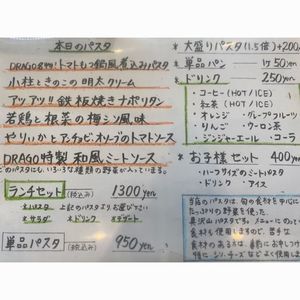 本日のパスタ
DRAGO名物!トマトもつ鍋風煮込みパスタ
小柱ときのこの明太クリーム
アツアツ!!鉄板焼きナポリタン
若鶏と根菜の梅シソ風味
やりいかとアンチョビ・オリーブのトマトソース
DRAGO特製 和風ミートソース
どのパスタにも、いろいろな種類の野菜が入っています。
ランチセット(税込み) 1300yen
*パスタ 上記のパスタよりお選び下さい
*サラダ *ドリンク *デザート
単品パスタ(税込み) 950yen
*大盛りパスタ(1.5倍)+200
*単品パン 1ヶ50yen
*ドリンク 250yen
・コーヒー(HOT/ICE)
・紅茶(HOT/ICE)
・オレンジ・グレープフルーツ
・りんご ・ウーロン茶
・ジンジャーエール ・コーラ
*お子様セット 400yen
・ハーフサイズのミートパスタ
・ドリンク ・アイス
当店のパスタは、旬の食材を中心に
たっぷりの野菜を使った、
具沢山パスタです。メニューにのって
食材も使用しますので、苦手な
食材のある方は、事前にお申しつけ
特に、シソ、チーズなどよく使用しま